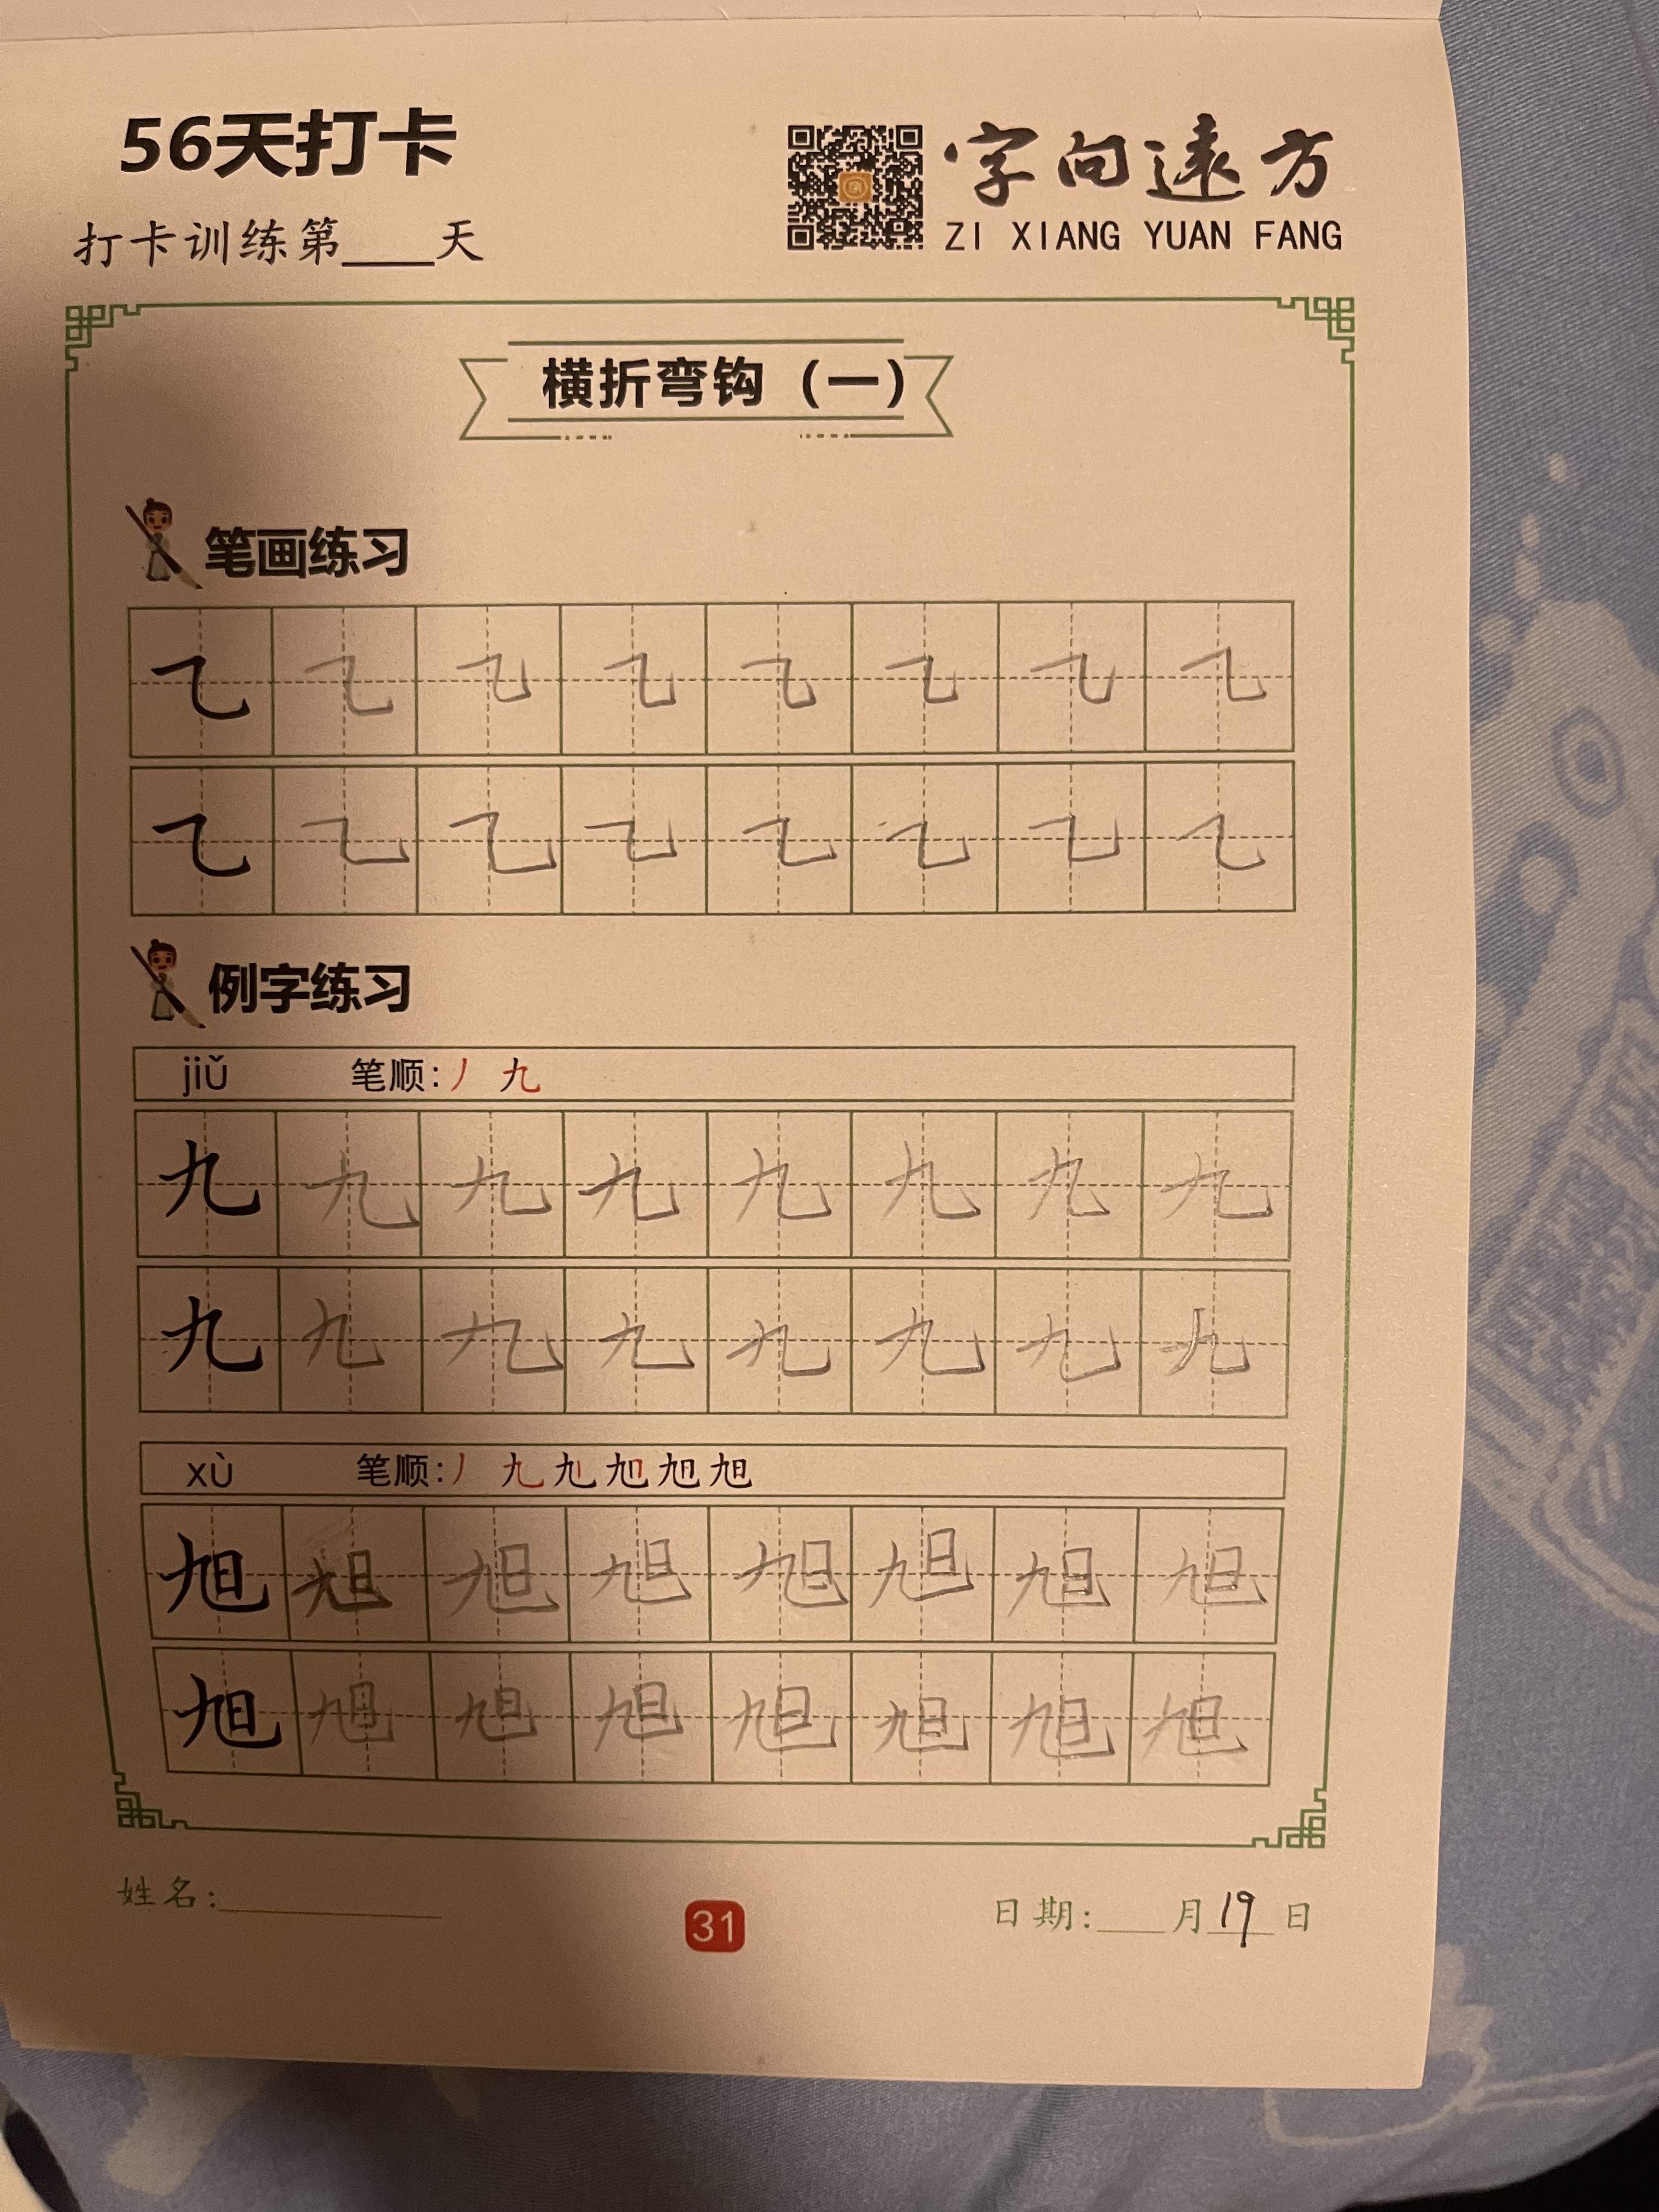 56天打卡
字向遠方
打卡训练第____天
ZI XIANG YUAN FANG
横折弯钩（一）
笔画练习
㇈ ㇈ ㇈ ㇈ ㇈ ㇈ ㇈ ㇈
㇈ ㇈ ㇈ ㇈ ㇈ ㇈ ㇈ ㇈
例字练习
jiǔ 笔顺:丿 九
九 九 九 九 九 九 九 九
九 九 九 九 九 九 九 九
xù 笔顺:丿 九 旭 旭 旭 旭
旭 旭 旭 旭 旭 旭 旭 旭
旭 旭 旭 旭 旭 旭 旭 旭
姓名:____
31
日期:____月19日